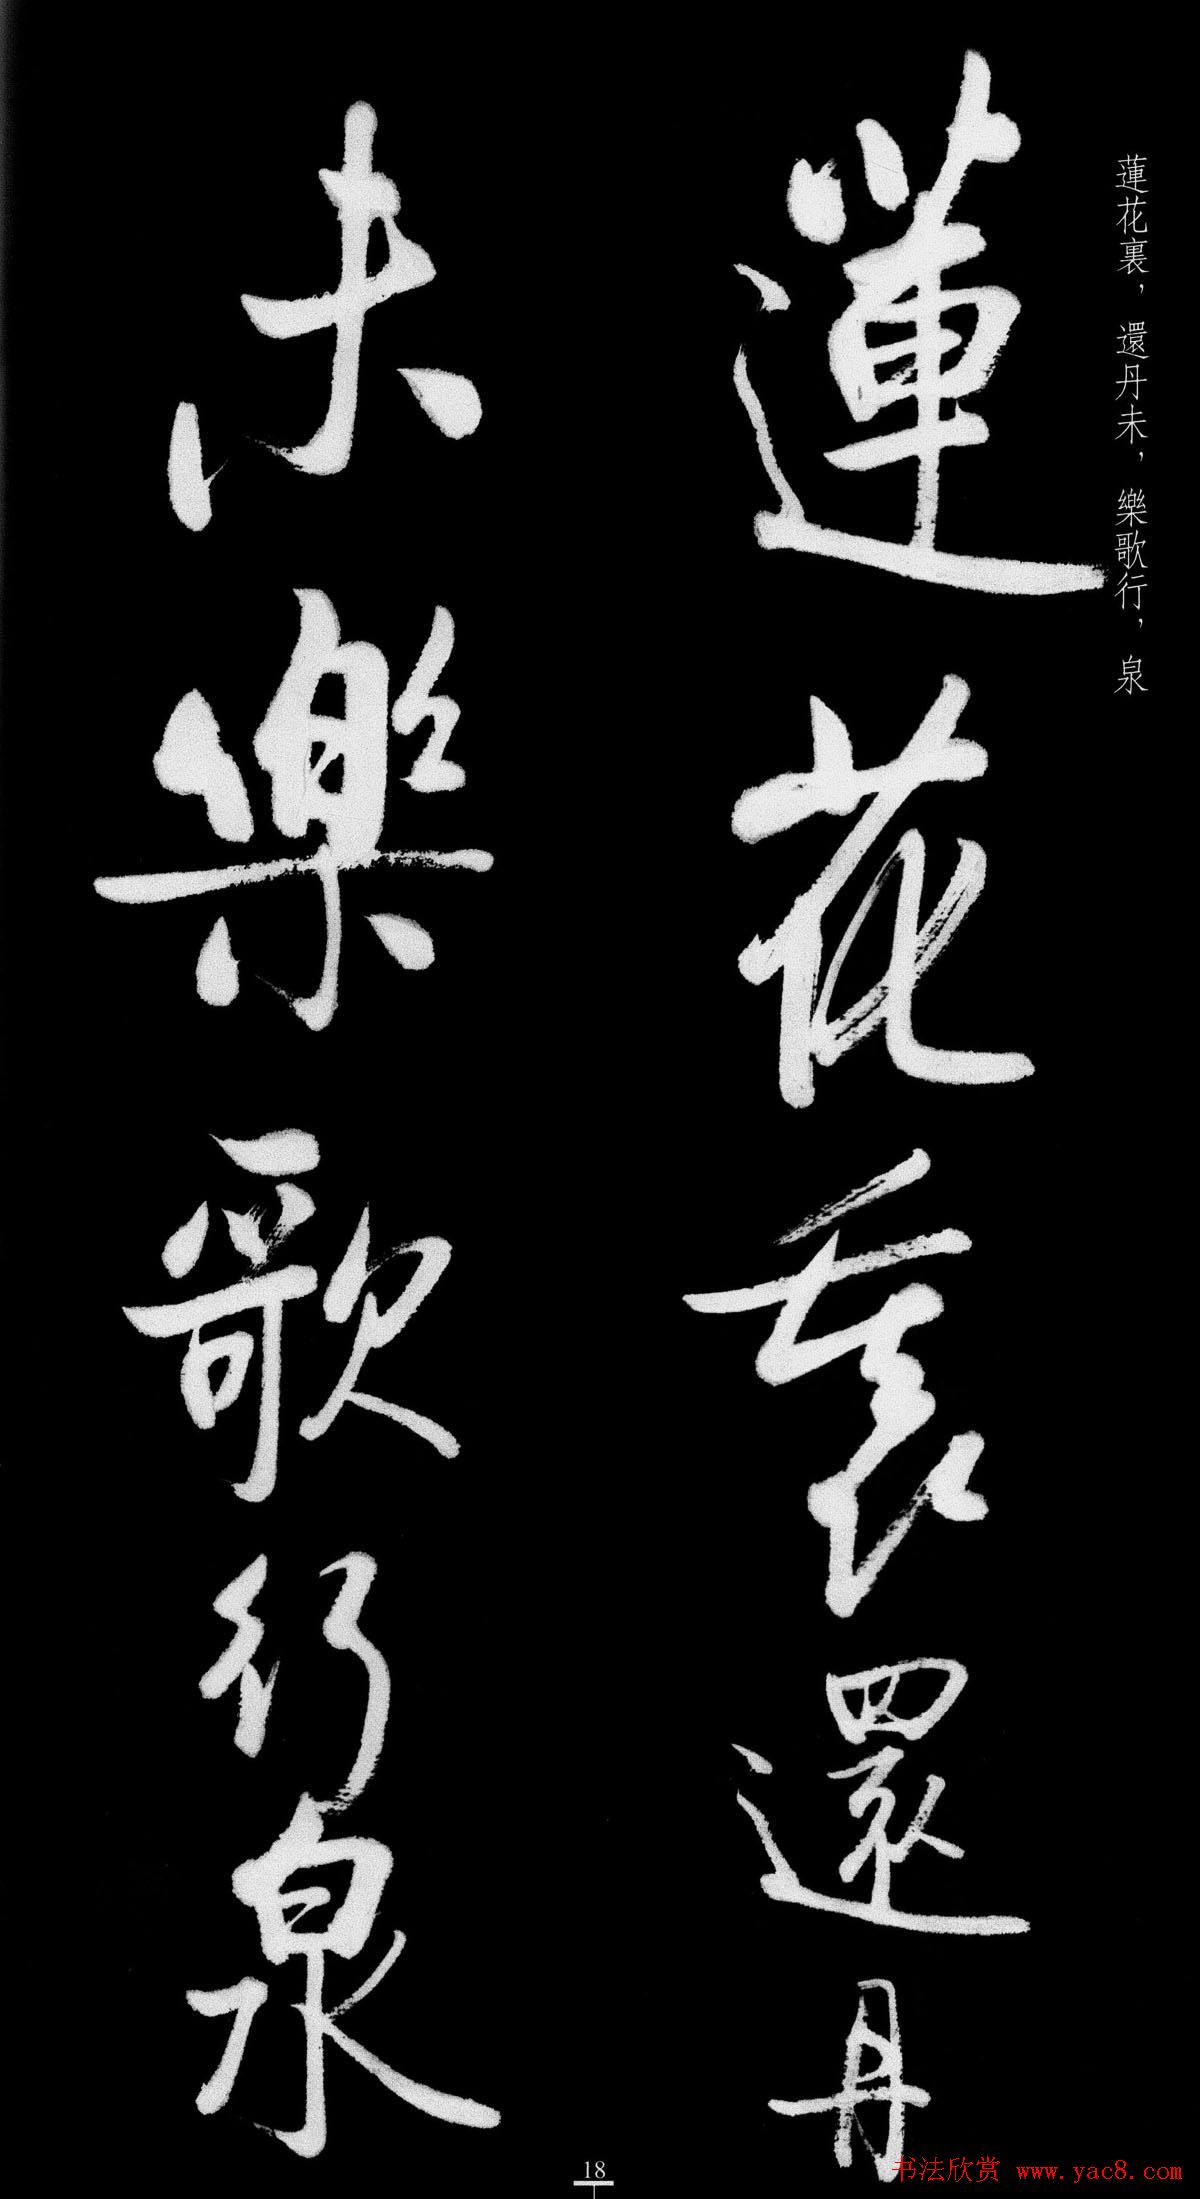 蓮花裏，還丹未，樂歌行，泉
蓮花裏還丹
未樂歌行泉
18
书法欣赏 www.yac8.com